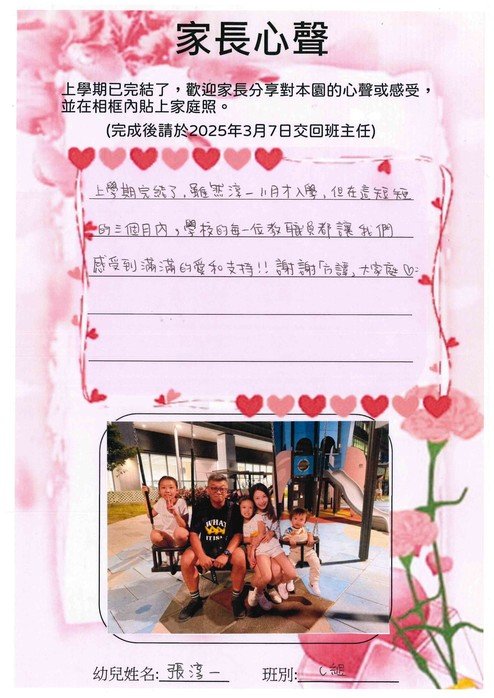 家長心聲
上學期已完結了，歡迎家長分享對本園的心聲或感受，
並在相框內貼上家庭照。
(完成後請於2025年3月7日交回班主任)
上學期完結了，雖然淳一11月才入學，但在這短短
的三個月內，學校的每一位教職員都讓我們
感受到滿滿的愛和支持!! 謝謝「方譚」大家庭♡
WHAT
IT IS
幼兒姓名: 張淳一 班別: C組